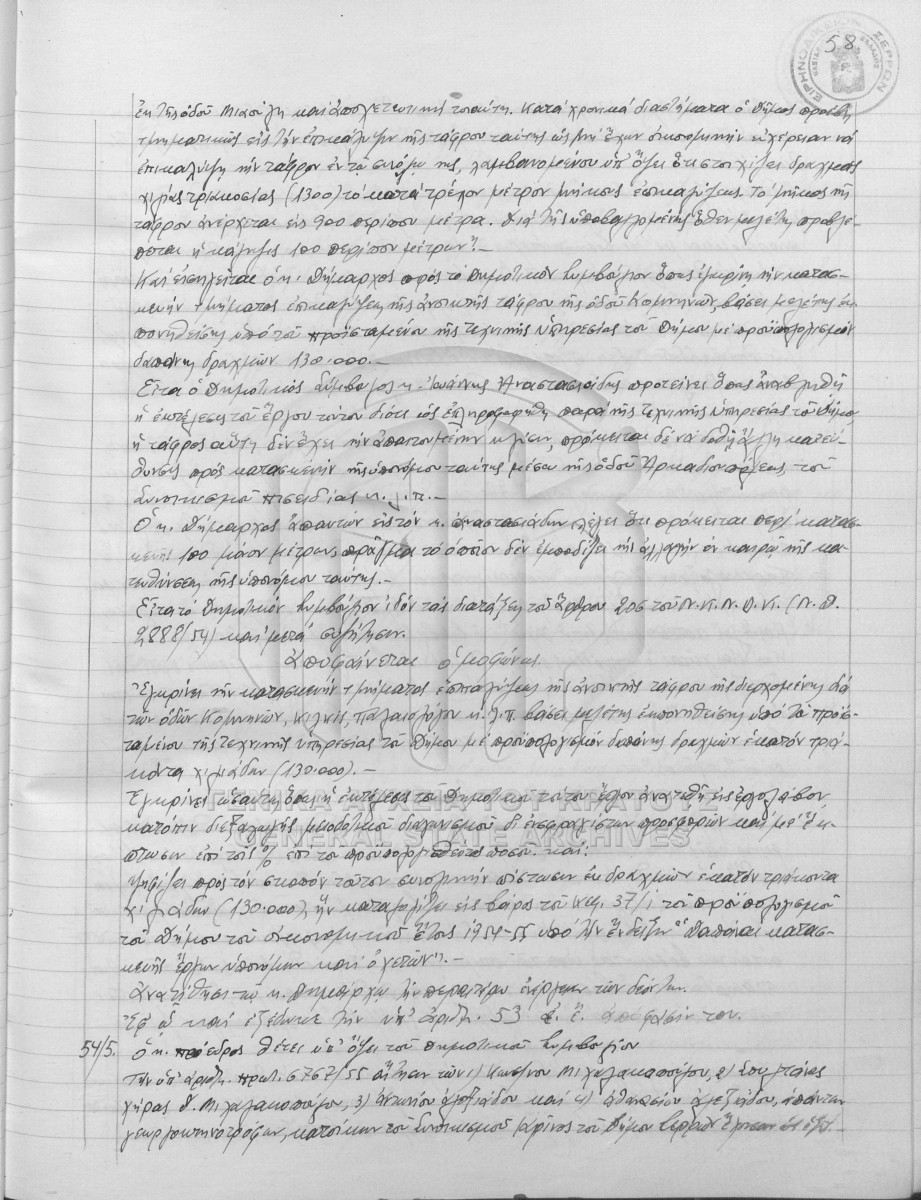 58
ΕΙΡΗΝΟΔΙΚΕΙΟΝ ΣΕΡΡΩΝ
ἐκ τῆς ὁδοῦ Μιαούλη καὶ ἀποχετευτικῆς τοιαύτη. Κατὰ χρονικὰ διαστήματα ὁ Δῆμος προέβη
τμηματικῶς εἰς τὴν ἐπικάλυψιν τῆς τάφρου ταύτης ὡς μὴ ἔχων οἰκονομικὴν εὐχέρειαν νὰ
ἐπικαλύψῃ τὴν τάφρον ἐν τῷ συνόλῳ της, λαμβανομένου ὑπ' ὄψει ὅτι στοιχίζει δραχμὰς
χιλίας τριακοσίας (1300) τὸ κατὰ τρέχον μέτρον μήκους ἐπικαλύψεως. Τὸ μῆκος τῆς
τάφρου ἀνέρχεται εἰς 900 περίπου μέτρα. Διὰ τῆς ὑποβαλλομένης ὅθεν μελέτης προβλέ-
πεται ἡ κάλυψις 100 περίπου μέτρων".-
Καὶ εἰσηγεῖται ὁ κ. Δήμαρχος πρὸς τὸ Δημοτικὸν Συμβούλιον ὅπως ἐγκρίνῃ τὴν κατασ-
κευὴν τμήματος ἐπικαλύψεως τῆς ἀνοικτῆς τάφρου τῆς ὁδοῦ Κομνηνῶν, βάσει μελέτης ἐκ-
πονηθείσης ὑπὸ τοῦ προϊσταμένου τῆς τεχνικῆς ὑπηρεσίας τοῦ Δήμου μὲ προϋπολογισμὸν
δαπάνης δραχμῶν 130.000.-
Εἶτα ὁ Δημοτικὸς Σύμβουλος κ. Ἰωάννης Ἀναστασιάδης προτείνει ὅπως ἀναβληθῇ
ἡ ἐκτέλεσις τοῦ ἔργου τούτου διότι ὡς ἐπληροφορήθη παρὰ τῆς τεχνικῆς ὑπηρεσίας τοῦ Δήμου
ἡ τάφρος αὕτη δὲν ἔχει τὴν ἀπαιτουμένην κλίσιν, πρόκειται δὲ νὰ δοθῇ ἄλλη κατεύ-
θυνσις πρὸς κατασκευὴν τῆς ὑπονόμου ταύτης μέσῳ τῆς ὁδοῦ Ἀρκαδιουπόλεως, τοῦ
Συνοικισμοῦ Πισειδίας κ.λ.π.-
Ὁ κ. Δήμαρχος ἀπαντῶν εἰς τὸν κ. Ἀναστασιάδην λέγει ὅτι πρόκειται περὶ κατασ-
κευῆς 100 μόνον μέτρων, πρᾶγμα τὸ ὁποῖον δὲν ἐμποδίζει τὴν ἀλλαγὴν ἐν καιρῷ τῆς κα-
τευθύνσεως τῆς ὑπονόμου ταύτης.-
Εἶτα τὸ Δημοτικὸν Συμβούλιον ἰδὸν τὰς διατάξεις τοῦ ἄρθρου 206 τοῦ Ν.Κ.Ν.Δ.Κ. (Ν.Δ.
2888/54) καὶ μετὰ συζήτησιν.
Ἀποφαίνεται ὁμοφώνως
Ἐγκρίνει τὴν κατασκευὴν τμήματος ἐπικαλύψεως τῆς ἀνοικτῆς τάφρου τῆς διερχομένης διὰ
τῶν ὁδῶν Κομνηνῶν, Κιλκίς, Παλαιολόγου κ.λ.π. βάσει μελέτης ἐκπονηθείσης ὑπὸ τοῦ προϊσ-
ταμένου τῆς τεχνικῆς ὑπηρεσίας τοῦ Δήμου μὲ προϋπολογισμὸν δαπάνης δραχμῶν ἑκατὸν τριά-
κοντα χιλιάδων (130.000).-
Ἐγκρίνει ὡσαύτως ὅπως ἡ ἐκτέλεσις τοῦ Δημοτικοῦ τούτου ἔργου ἀνατεθῇ εἰς ἐργολάβον
κατόπιν διεξαγωγῆς μειοδοτικοῦ διαγωνισμοῦ δι' ἐνσφραγίστων προσφορῶν καὶ μὲ ἔκ-
πτωσιν ἐπὶ τοῖς % ἐπὶ τοῦ προϋπολογισθέντος ποσοῦ. καὶ.
Ψηφίζει πρὸς τὸν σκοπὸν τοῦτον συνολικὴν πίστωσιν ἐκ δραχμῶν ἑκατὸν τριάκοντα
χιλιάδων (130.000), ἣν καταλογίζει εἰς βάρος τοῦ Κεφ. 37/1 τοῦ προϋπολογισμοῦ
τοῦ Δήμου τοῦ οἰκονομικοῦ ἔτους 1954-55 ὑπὸ τὴν ἔνδειξιν "Δαπάναι κατασ-
κευῆς ἔργων ὑπονόμων καὶ ὀχετῶν".-
Ἀνατίθησι τῷ κ. Δημάρχῳ τὴν περαιτέρω ἐνέργειαν τῶν δεόντων.
Ἐφ' ᾧ καὶ ἐξέδωκε τὴν ὑπ' ἀριθ. 53 ἐ. ἔ. ἀπόφασίν του.
54/5. Ὁ κ. πρόεδρος θέτει ὑπ' ὄψει τοῦ Δημοτικοῦ Συμβουλίου
Τὴν ὑπ' ἀριθ. πρωτ. 6767/55 αἴτησιν τῶν 1) Κων/νου Μιχαλακοπούλου, 2) Σουλτάνας
χήρας Δ. Μιχαλακοπούλου, 3) Ἀντωνίου Ἀλεξιάδου καὶ 4) Ἀθανασίου Ἀλεξιάδου, ἁπάντων
γεωργοκτηνοτρόφων, κατοίκων τοῦ Συνοικισμοῦ τοῦ Δήμου Σερρῶν
ΓΕΝΙΚΑ ΑΡΧΕΙΑ ΤΟΥ ΚΡΑΤΟΥΣ
GENERAL STATE ARCHIVES